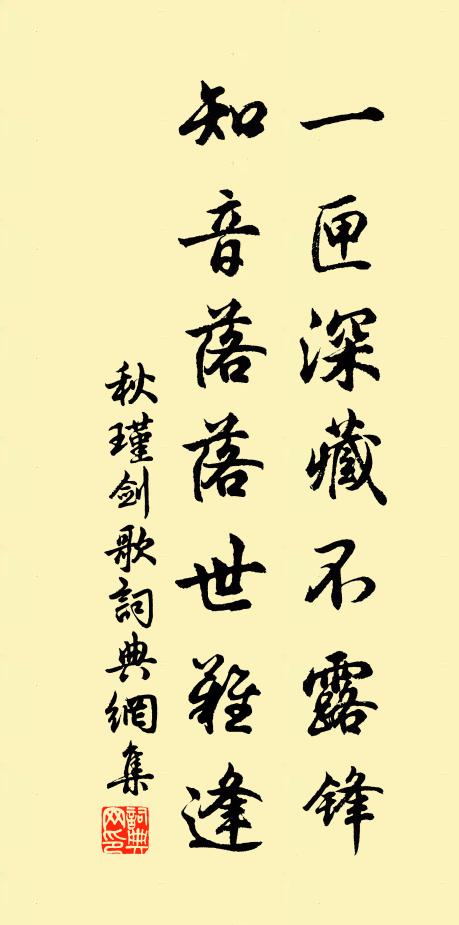 一匣深藏不露鋒
知音落落世難逢
秋瑾剑歌詞典網集
詞典网印